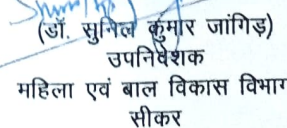 (डॉ. सुनिल कुमार जांगिड़)
उपनिदेशक
महिला एवं बाल विकास विभाग
सीकर